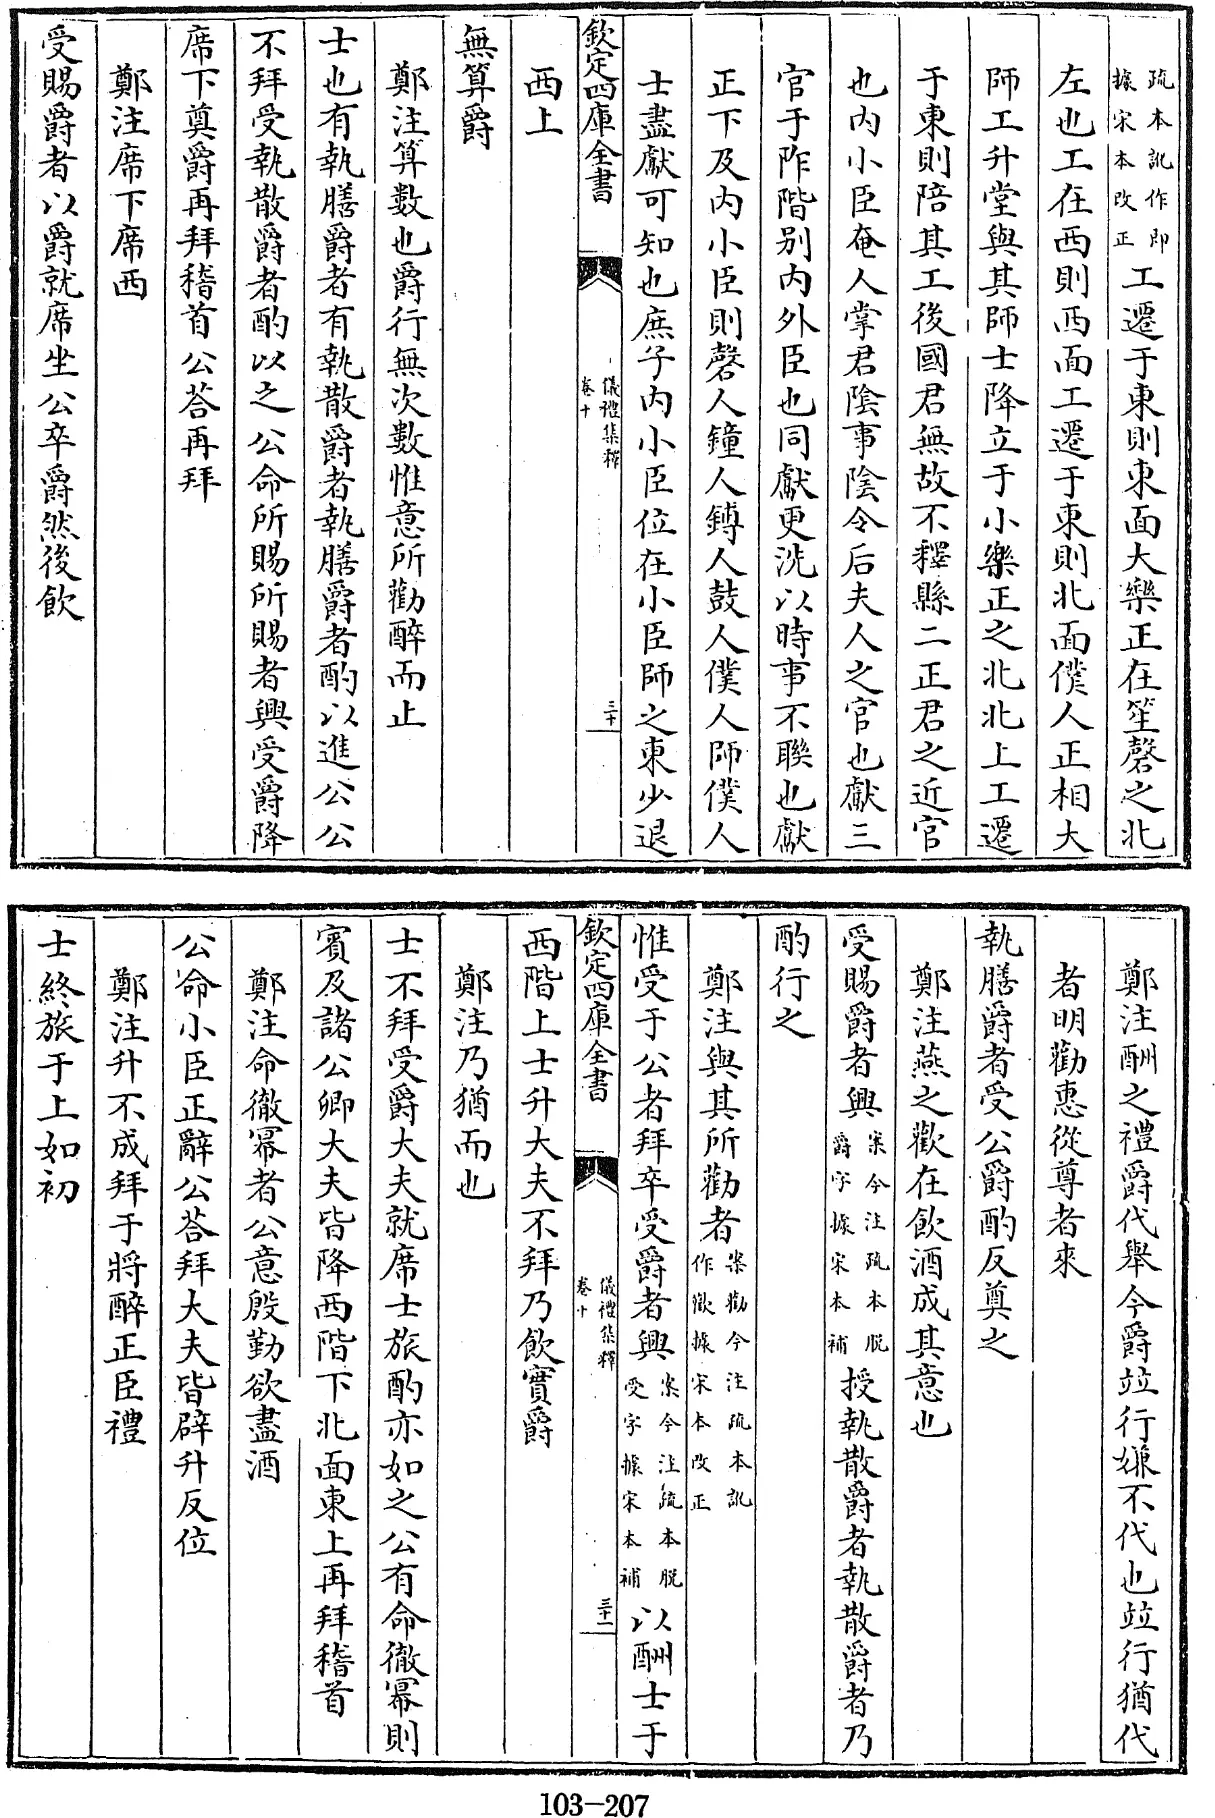 疏本訛作即
據宋本改正
工遷于東則東面大樂正在笙磬之北
左也工在西則西面工遷于東則北面僕人正相大
師工升堂與其師士降立于小樂正之北北上工遷
于東則陪其工後國君無故不釋縣二正君之近官
也内小臣奄人掌君陰事陰令后夫人之官也獻三
官于阼階别内外臣也同獻更洗以時事不聯也獻
正下及内小臣則磬人鐘人鎛人鼓人僕人師僕人
士盡獻可知也庶子内小臣位在小臣師之東少退
欽定四庫全書
儀禮集釋
卷十
三十
西上
無算爵
鄭注算數也爵行無次數惟意所勸醉而止
士也有執膳爵者有執散爵者執膳爵者酌以進公公
不拜受執散爵者酌以之公命所賜所賜者興受爵降
席下奠爵再拜稽首公荅再拜
鄭注席下席西
受賜爵者以爵就席坐公卒爵然後飲
鄭注酬之禮爵代舉今爵竝行嫌不代也竝行猶代
者明勸惠從尊者來
執膳爵者受公爵酌反奠之
鄭注燕之歡在飲酒成其意也
受賜爵者興
案今注疏本脱
爵字據宋本補
授執散爵者執散爵者乃
酌行之
鄭注與其所勸者
案勸今注疏本訛
作歡據宋本改正
惟受于公者拜卒受爵者興
案今注疏本脱
受字據宋本補
以酬士于
欽定四庫全書
儀禮集釋
卷十
三十一
西階上士升大夫不拜乃飲實爵
鄭注乃猶而也
士不拜受爵大夫就席士旅酌亦如之公有命徹冪則
賓及諸公卿大夫皆降西階下北面東上再拜稽首
鄭注命徹冪者公意殷勤欲盡酒
公命小臣正辭公荅拜大夫皆辟升反位
鄭注升不成拜于將醉正臣禮
士終旅于上如初
103-207